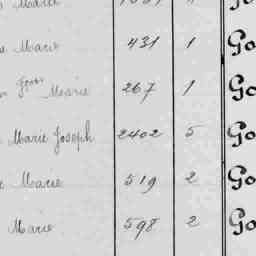 Marie
Marie 431 1 Go
Marie 267 1 Go
Marie Joseph 2402 5 Go
Marie 519 2 Go
Marie 598 2 Go